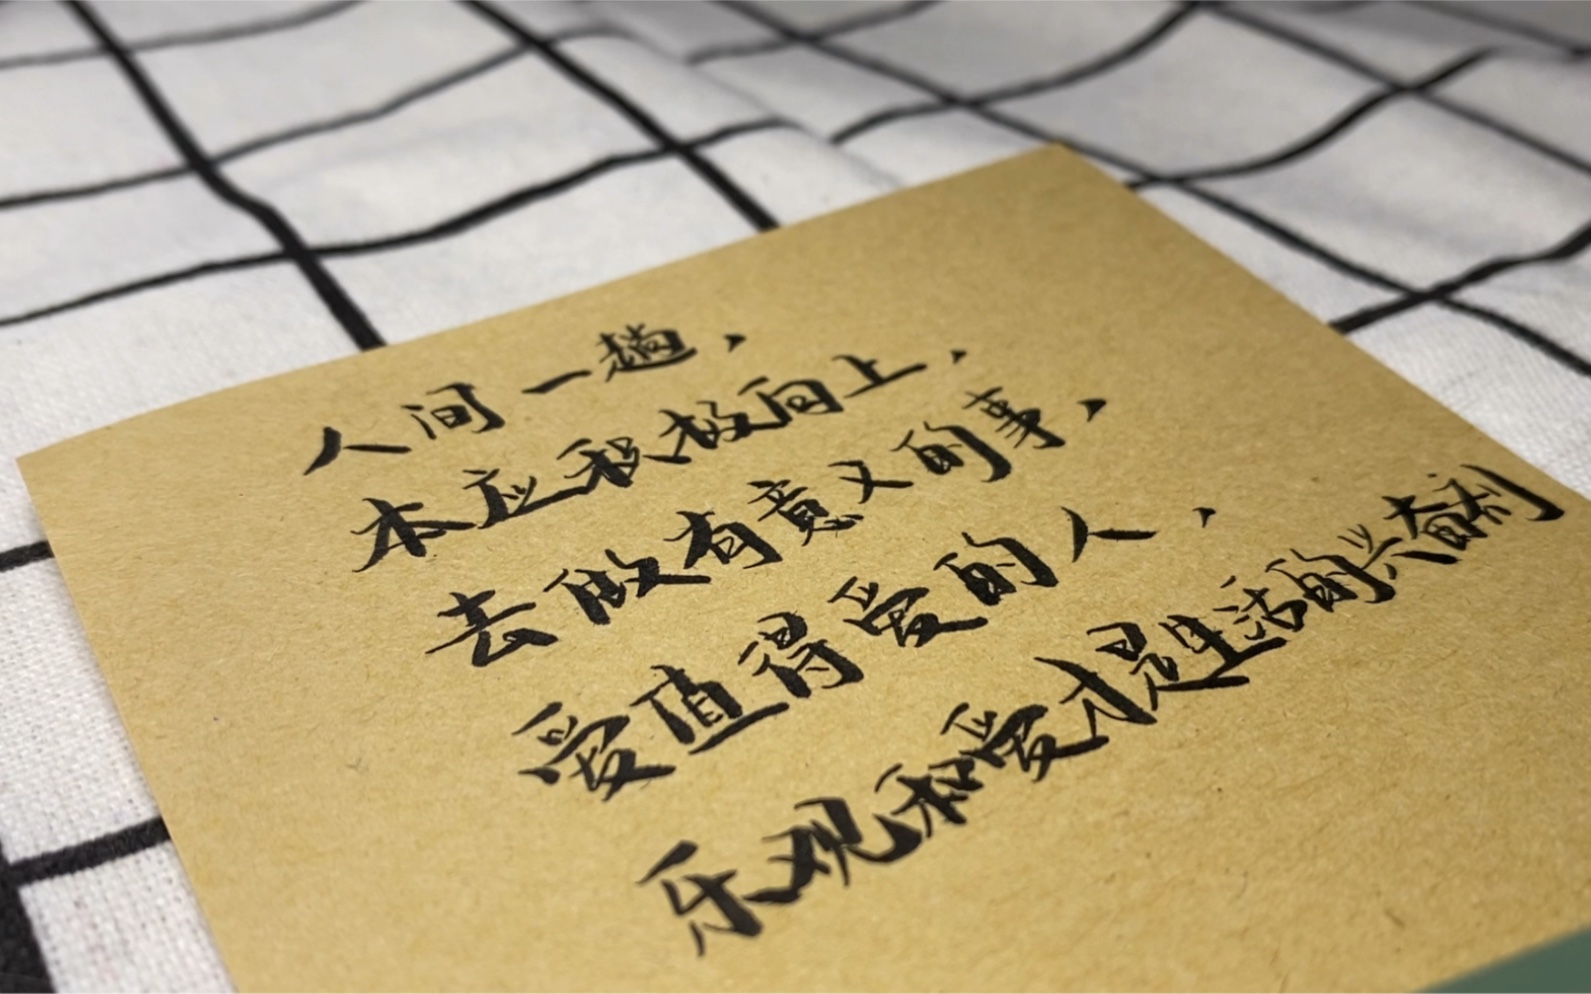 人间一趟，
本应积极向上，
去做有意义的事，
爱值得爱的人，
乐观和爱才是生活的兴奋剂